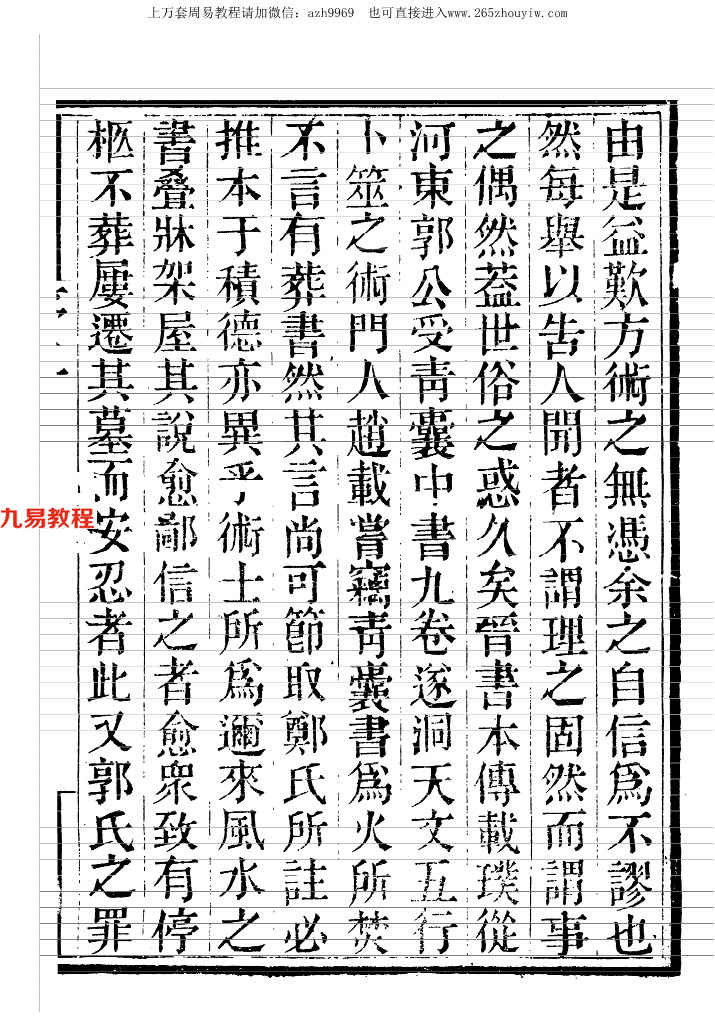 上万套周易教程请加微信：azh9969　也可直接进入www.265zhouyiw.com
由是益歎方術之無憑余之自信爲不謬也
然每舉以告人聞者不謂理之固然而謂事
之偶然蓋世俗之惑久矣晉書本傳載璞從
河東郭公受青囊中書九卷遂洞天文五行
卜筮之術門人趙載嘗竊青囊書爲火所焚
不言有葬書然其言尚可節取鄭氏所註必
推本于積德亦異乎術士所爲邇來風水之
書叠牀架屋其說愈鄙信之者愈衆致有停
柩不葬屢遷其墓而安忍者此又郭氏之罪
九易教程